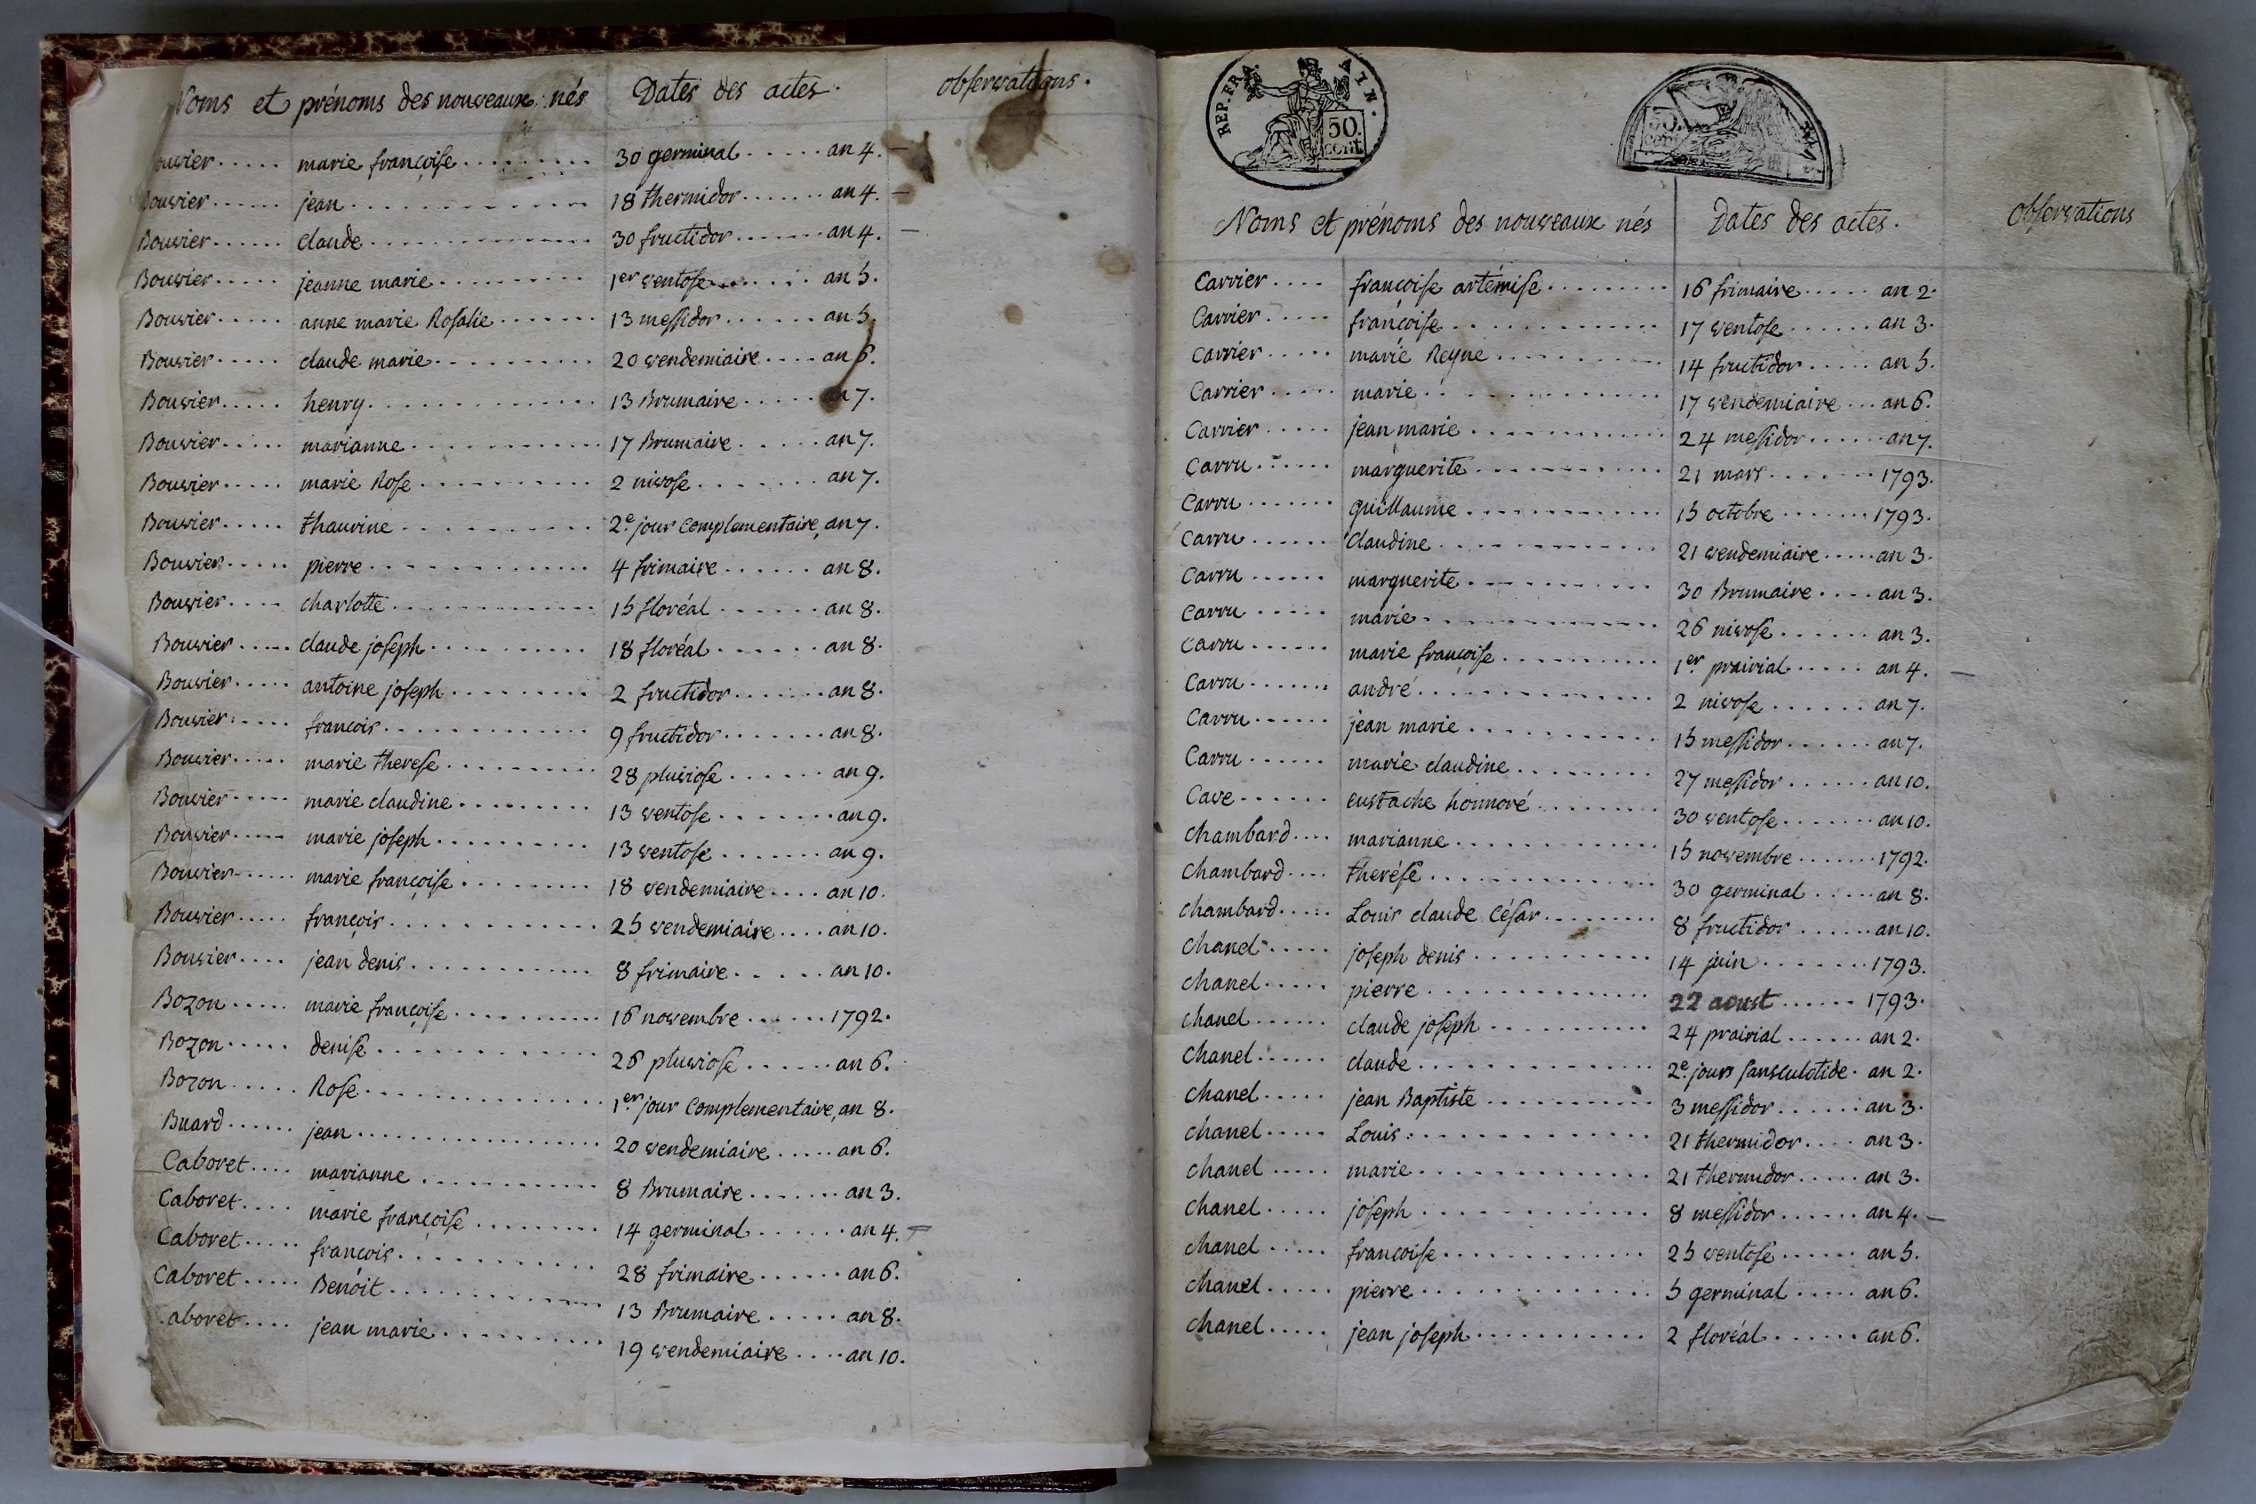 Noms et prénoms des nouveaux nés Dates des actes. observations.
Bouvier..... marie françoise......... 30 germinal..... an 4. —
Bouvier..... jean............ 18 thermidor....... an 4. —
Bouvier..... claude............ 30 fructidor...... an 4. —
Bouvier..... jeanne marie......... 1er ventose....... an 5.
Bouvier..... anne marie Rosalie....... 13 messidor...... an 5.
Bouvier..... claude marie.......... 20 vendemiaire.... an 6.
Bouvier..... henry............. 13 Brumaire..... an 7.
Bouvier..... marianne........... 17 Brumaire..... an 7.
Bouvier..... marie Rose.......... 2 nivose....... an 7.
Bouvier..... thaurine........... 2e. jour complementaire, an 7.
Bouvier..... pierre............ 4 frimaire...... an 8.
Bouvier.... charlotte............ 15 floréal...... an 8.
Bouvier..... claude joseph.......... 18 floréal...... an 8.
Bouvier..... antoine joseph......... 2 fructidor....... an 8.
Bouvier..... francois............ 9 fructidor....... an 8.
Bouvier..... marie therese......... 28 pluviose...... an 9.
Bouvier..... marie claudine......... 13 ventose....... an 9.
Bouvier..... marie joseph.......... 13 ventose....... an 9.
Bouvier..... marie françoise......... 18 vendemiaire.... an 10.
Bouvier..... françois............ 25 vendemiaire.... an 10.
Bouvier.... jean denis............ 8 frimaire..... an 10.
Bozon..... marie françoise.......... 16 novembre...... 1792.
Bozon..... denise............ 26 pluviose...... an 6.
Bozon..... Rose............. 1er. jour complementaire, an 8.
Buard...... jean............. 20 vendemiaire..... an 6.
Caboret.... marianne........... 8 Brumaire....... an 3.
Caboret.... marie françoise......... 14 germinal...... an 4. —
Caboret..... francois........... 28 frimaire...... an 6.
Caboret..... Benoit............. 13 Brumaire..... an 8.
Caboret.... jean marie.......... 19 vendemiaire.... an 10.
REP. FRA.
50. cent
50. cent
Noms et prénoms des nouveaux nés Dates des actes. observations
Carrier.... françoise artémise........ 16 frimaire..... an 2.
Carrier..... françoise............. 17 ventose...... an 3.
Carrier..... marie Reyne.......... 14 fructidor..... an 5.
Carrier..... marie.............. 17 vendemiaire... an 6.
Carrier..... jean marie............ 24 messidor...... an 7.
Carru...... marguerite............ 21 mars....... 1793.
Carru....... guillaume............ 15 octobre....... 1793.
Carru...... Claudine............. 21 vendemiaire..... an 3.
Carru...... marguerite........... 30 Brumaire.... an 3.
Carru...... marie.............. 26 nivose...... an 3.
Carru...... marie françoise.......... 1er prairial..... an 4. —
Carru....... andré.............. 2 nivose...... an 7.
Carru...... jean marie........... 15 messidor...... an 7.
Carru...... marie claudine......... 27 messidor...... an 10.
Cave...... eustache honnoré......... 30 ventose....... an 10.
Chambard.... marianne............. 15 novembre....... 1792.
Chambard.... therése.............. 30 germinal..... an 8.
Chambard..... Louis claude César........ 8 fructidor...... an 10.
Chanel..... joseph denis............ 14 juin....... 1793.
Chanel..... pierre.............. 22 aoust...... 1793.
Chanel...... claude joseph........... 24 prairial...... an 2.
Chanel...... claude.............. 2e. jour sansculotide. an 2.
Chanel..... jean Baptiste........... 3 messidor...... an 3.
Chanel..... Louis............... 21 thermidor.... an 3.
Chanel..... marie.............. 21 thermidor..... an 3.
Chanel..... joseph............. 8 messidor...... an 4. —
Chanel..... françoise............ 25 ventose...... an 5.
Chanel..... pierre............. 5 germinal..... an 6.
Chanel..... jean joseph........... 2 floréal...... an 6.